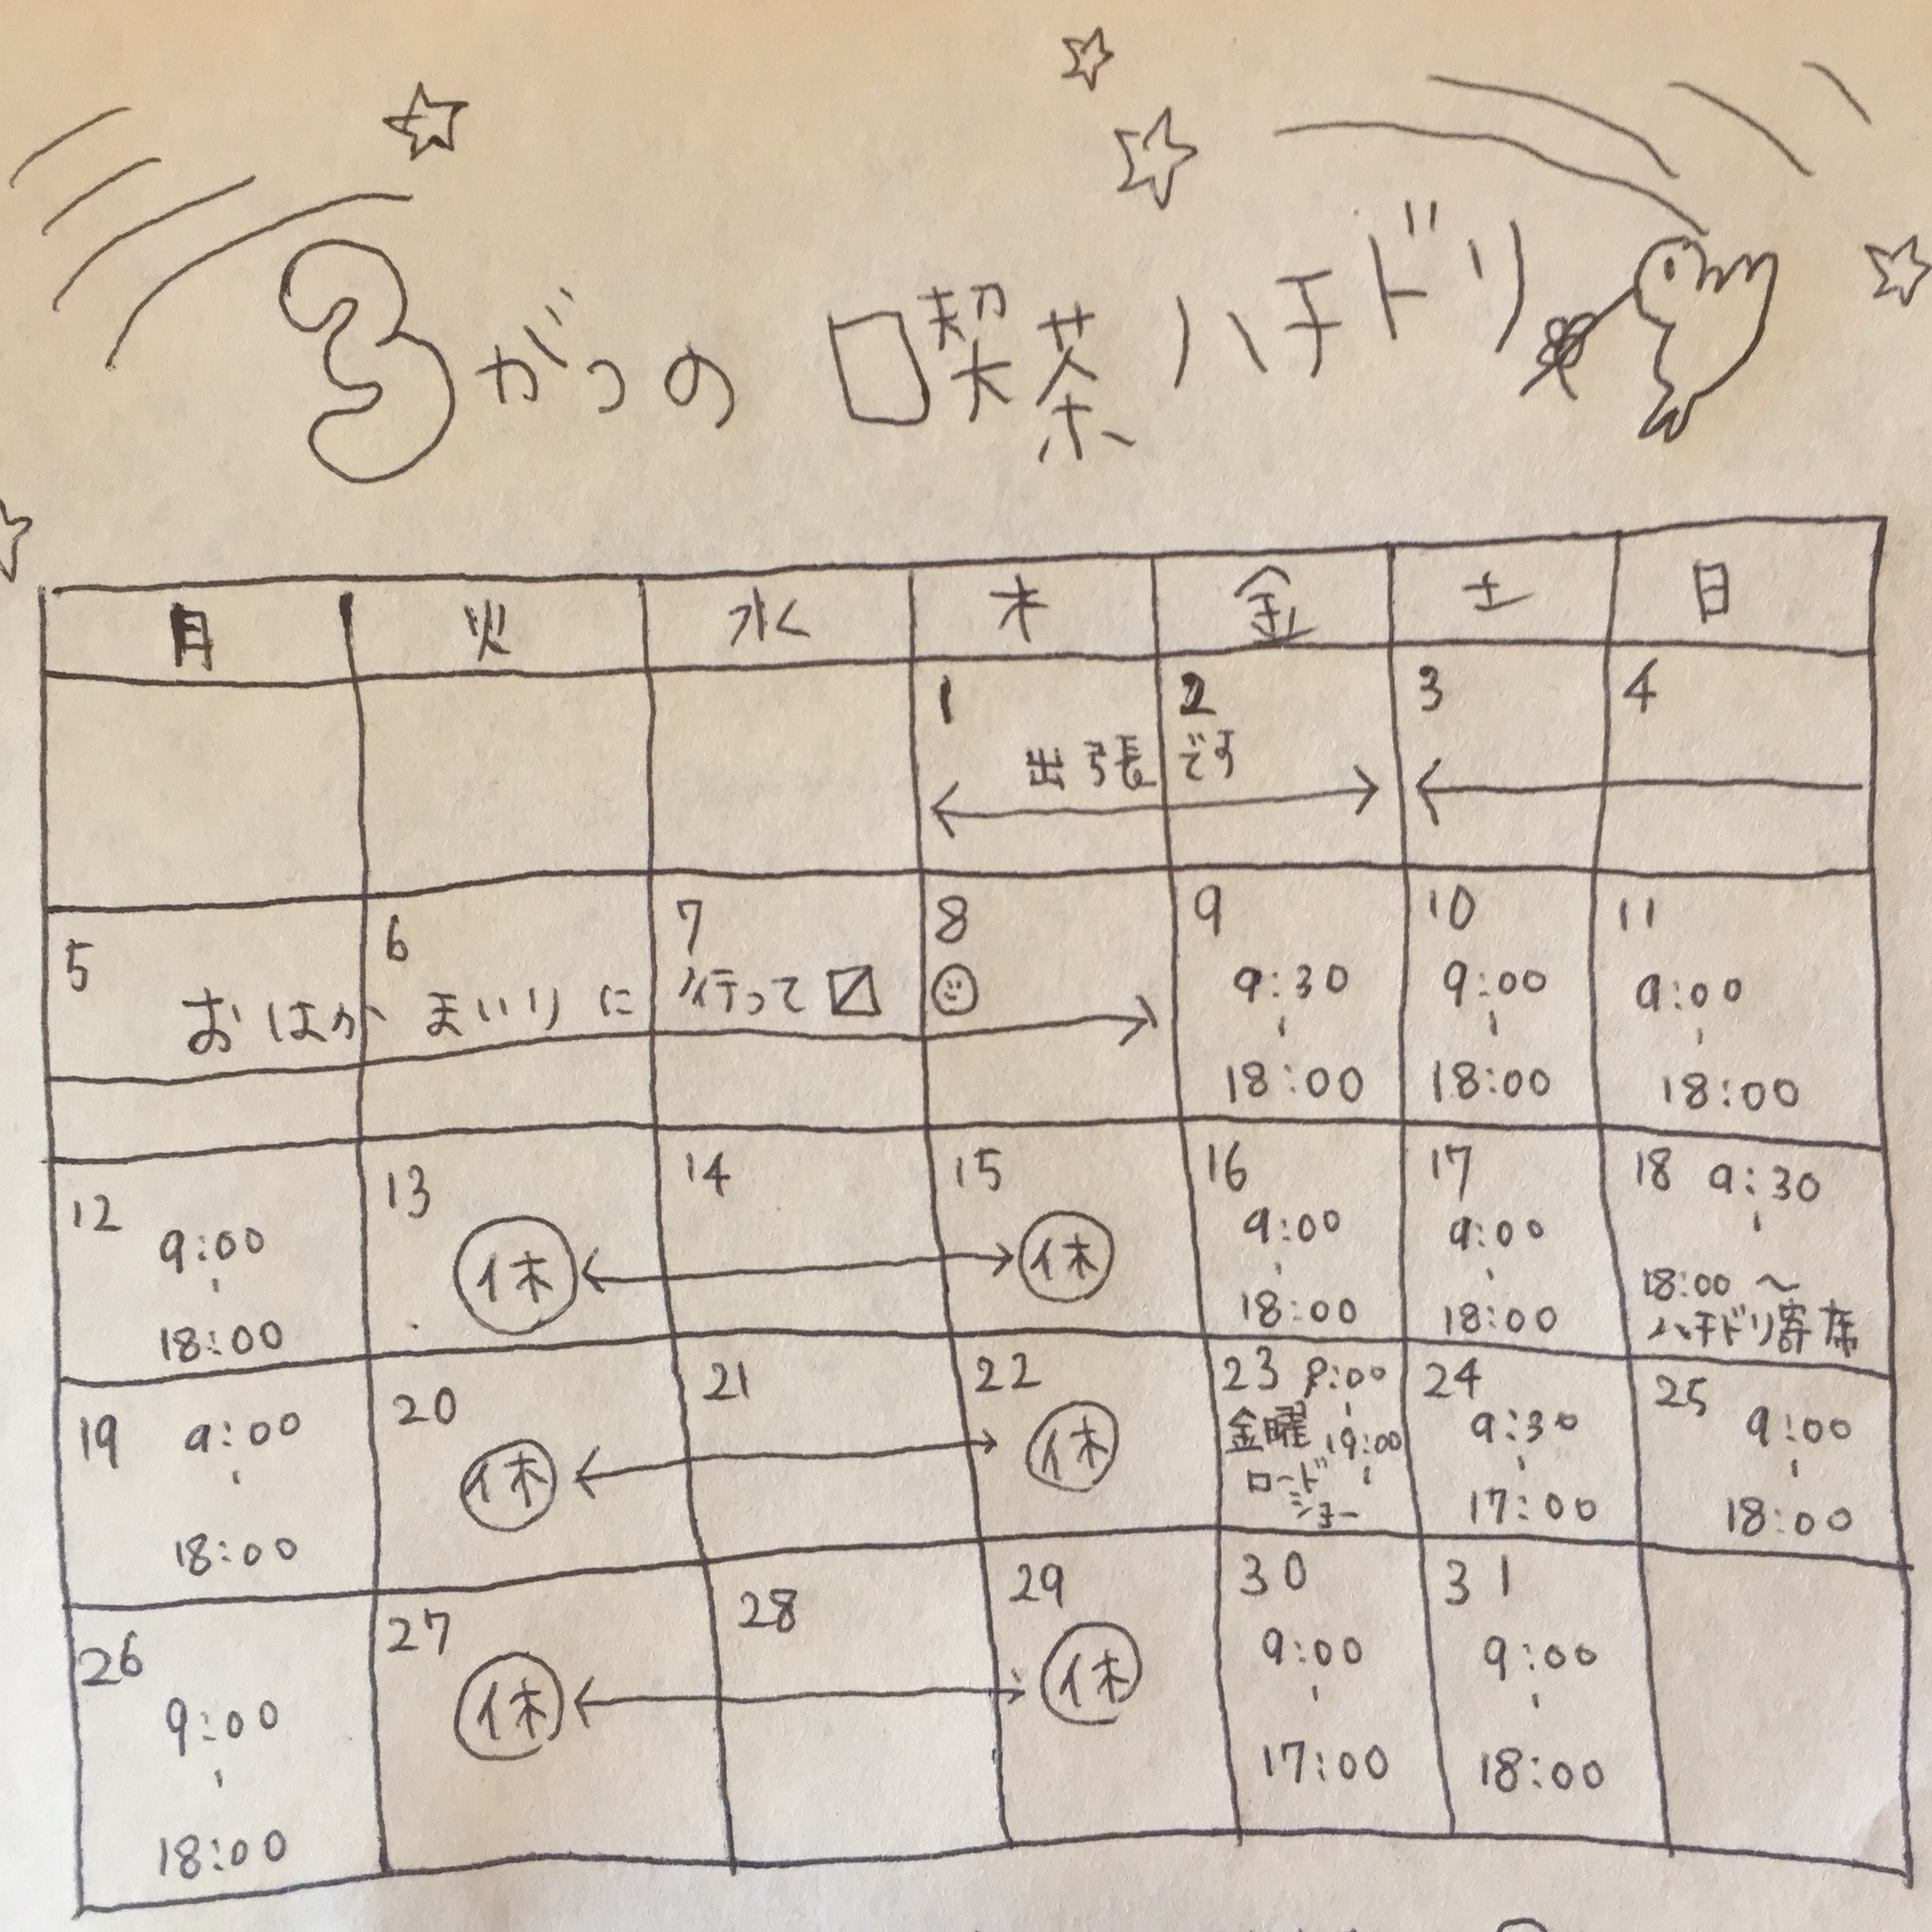 3がつの 喫茶ハチドリ
月 火 水 木 金 土 日
1 2 3 4
出張です
5 6 7 8 9 10 11
おはかまいりに行って〼
9:30 9:00 9:00
18:00 18:00 18:00
12 13 14 15 16 17 18 9:30
9:00 休 休 9:00 9:00
18:00 18:00 18:00 18:00〜
ハチドリ寄席
19 9:00 20 21 22 23 24 25
金曜 19:00 9:30 9:00
休 休 ロード
ショー
18:00 17:00 18:00
26 27 28 29 30 31
9:00 休 休 9:00 9:00
18:00 17:00 18:00